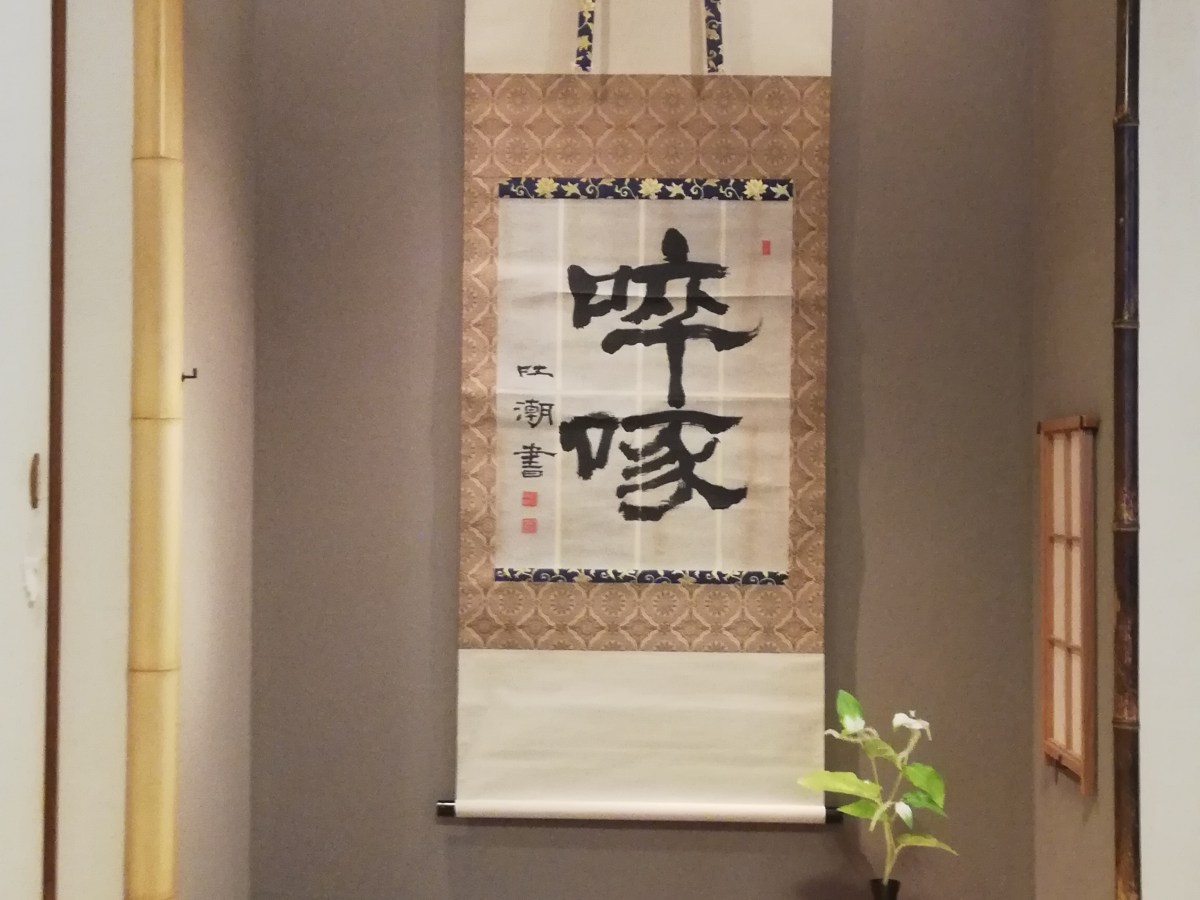 啐啄
江潮書